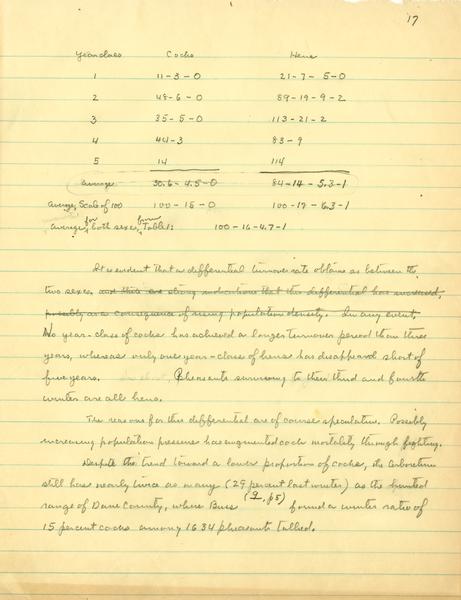 17
Yearclass Cocks Hens
1 11-3-0 21-7-5-0
2 48-6-0 89-19-9-2
3 35-5-0 113-21-2
4 44-3 83-9
5 14 114
average 30.6-4.5-0 84-14-5.3-1
average, Scale of 100 100-15-0 100-17-6.3-1
average, for both sexes, from Table 1: 100-16-4.7-1
It is evident that a differential turnover rate obtains as between the
two sexes, and there are strong indications that this differential has increased,
possibly as a consequence of rising population density. In any event,
No year-class of cocks has achieved a longer turnover period than three
years, whereas only one year-class of hens has disappeared short of
five years. Pheasants surviving to their third and fourth
winter are all hens.
The reasons for this differential are of course speculative. Possibly
increasing population pressure has augmented cock mortality through fighting.
Despite the trend toward a lower proportion of cocks, the Arboretum
still has nearly twice as many (29 percent last winter) as the hunted
range of Dane County, where Buss (9, p5) found a winter ratio of
15 percent cocks among 1634 pheasants tallied.